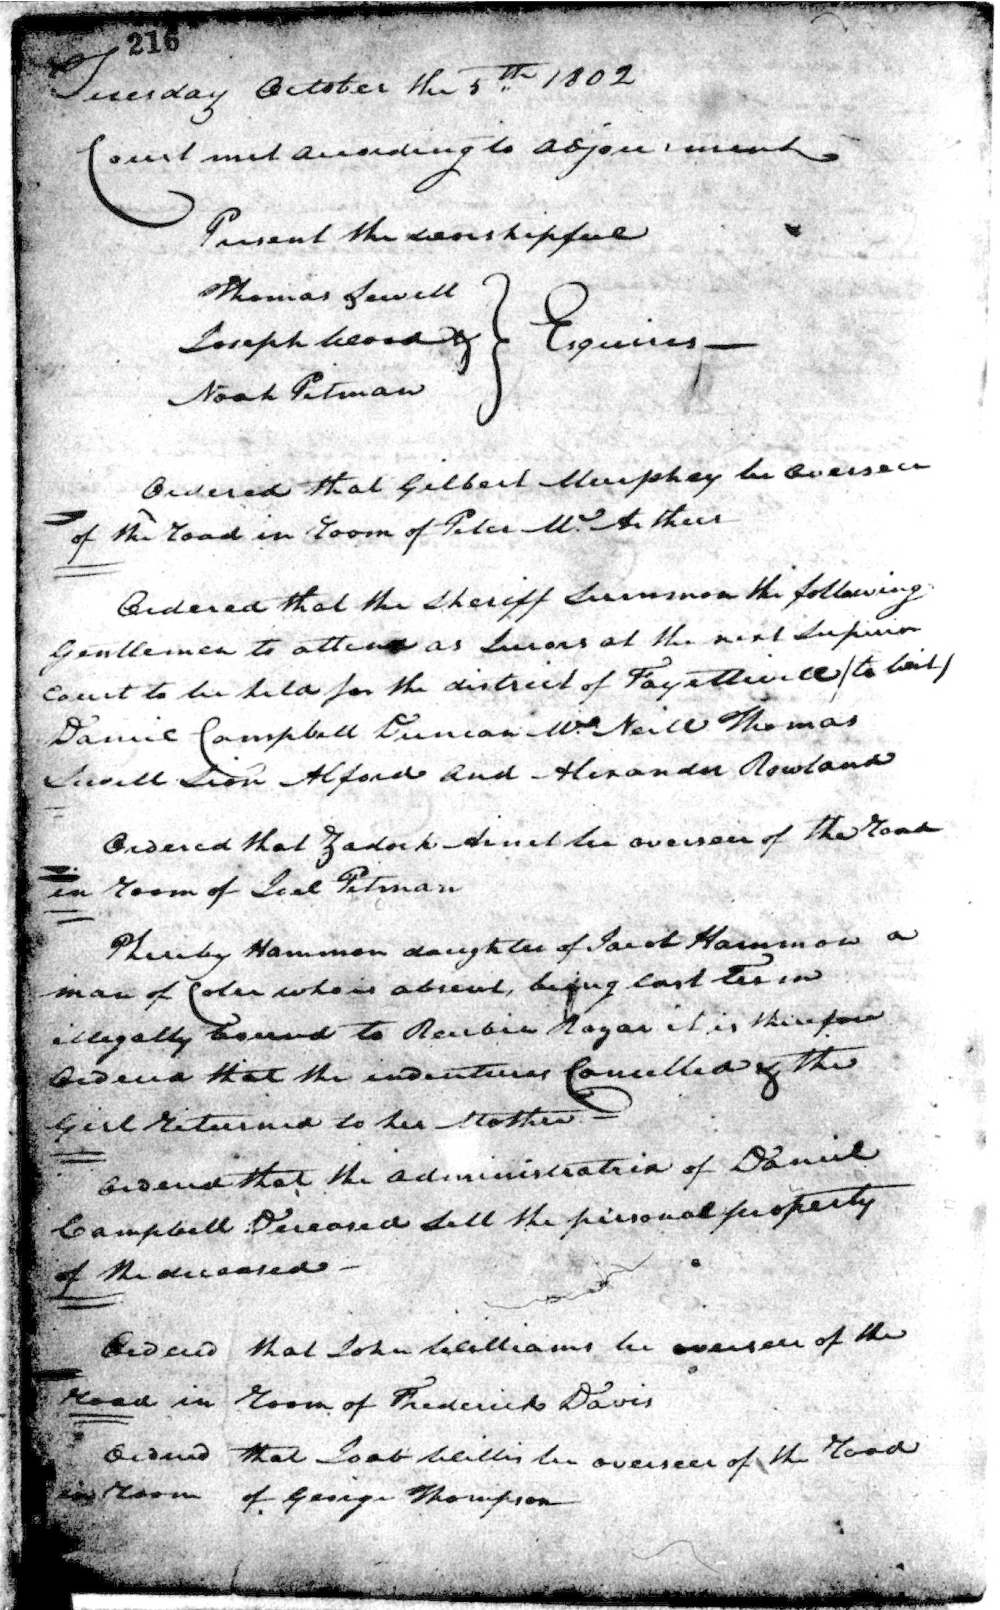 216
Tuesday October the 5th 1802
Court met according to adjournment
Present the worshipful
Thomas Sewell
Joseph Wood &
Noah Pitman
Esquires
Ordered that Gilbert Murphey be overseer
of the road in room of Peter Mc. Arther
Ordered that the Sheriff Summon the following
Gentlemen to attend as Jurors at the next Superior
Court to be held for the district of Fayetteville (to wit)
Daniel Campbell Duncan Mc. Neill Thomas
Sewell Sion Alford and Alexander Rowland
Ordered that Zadock be overseer of the road
in room of Joel Pitman
Phereby Hammon daughter of Jacob Hammon a
man of Coler who is absent, being last term
illegally bound to Reubin Rogar it is therefore
Ordered that the indentures Cancelled & the
Girl returned to her Mother
Ordered that the administratrix of Daniel
Campbell Deceased Sell the personal property
of the deceased
Ordered that John Williams be overseer of the
road in room of Frederick Davis
Ordered that Joab Willis be overseer of the road
in room of George Thompson